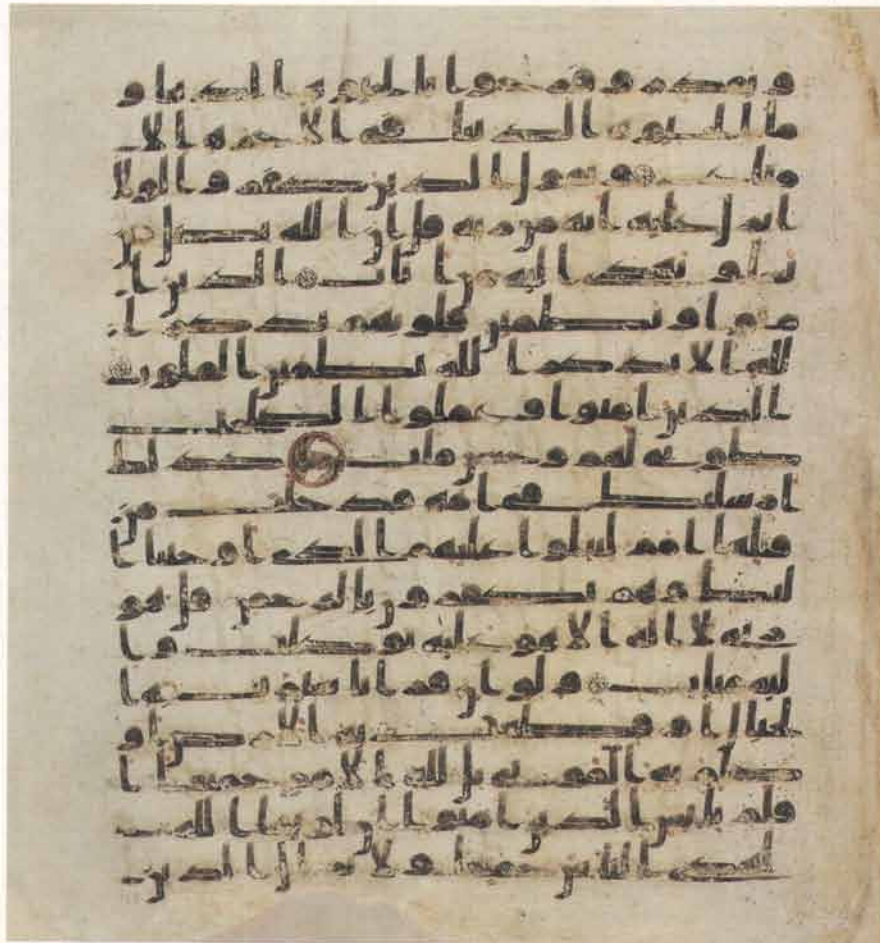 و يقدر و فرحوا بالحيوة الدنيا و
ما الحيوة الدنيا في الاخرة الا
متاع و يقول الذين كفروا لولا
انزل عليه ايه من ربه قل ان الله يضل من
يشا و يهدي اليه من اناب الذين ا
منوا و تطمين قلوبهم بذكر ا
لله الا بذكر الله تطمين القلوب
الذين امنوا و عملوا الصلحت
طوبى لهم و حسن ماب كذلك
ارسلنك في امه قد خلت من
قبلها امم لتتلوا عليهم الذي اوحينا ا
ليك و هم يكفرون بالرحمن قل هو
ربي لا اله الا هو عليه توكلت و ا
ليه متاب و لو ان قرانا سيرت به ا
لجبال او قطعت به الارض او
كلم به الموتى بل لله الامر جميعا ا
فلم يايس الذين امنوا ان لو يشا الله
لهدى الناس جميعا و لا يزال الذين